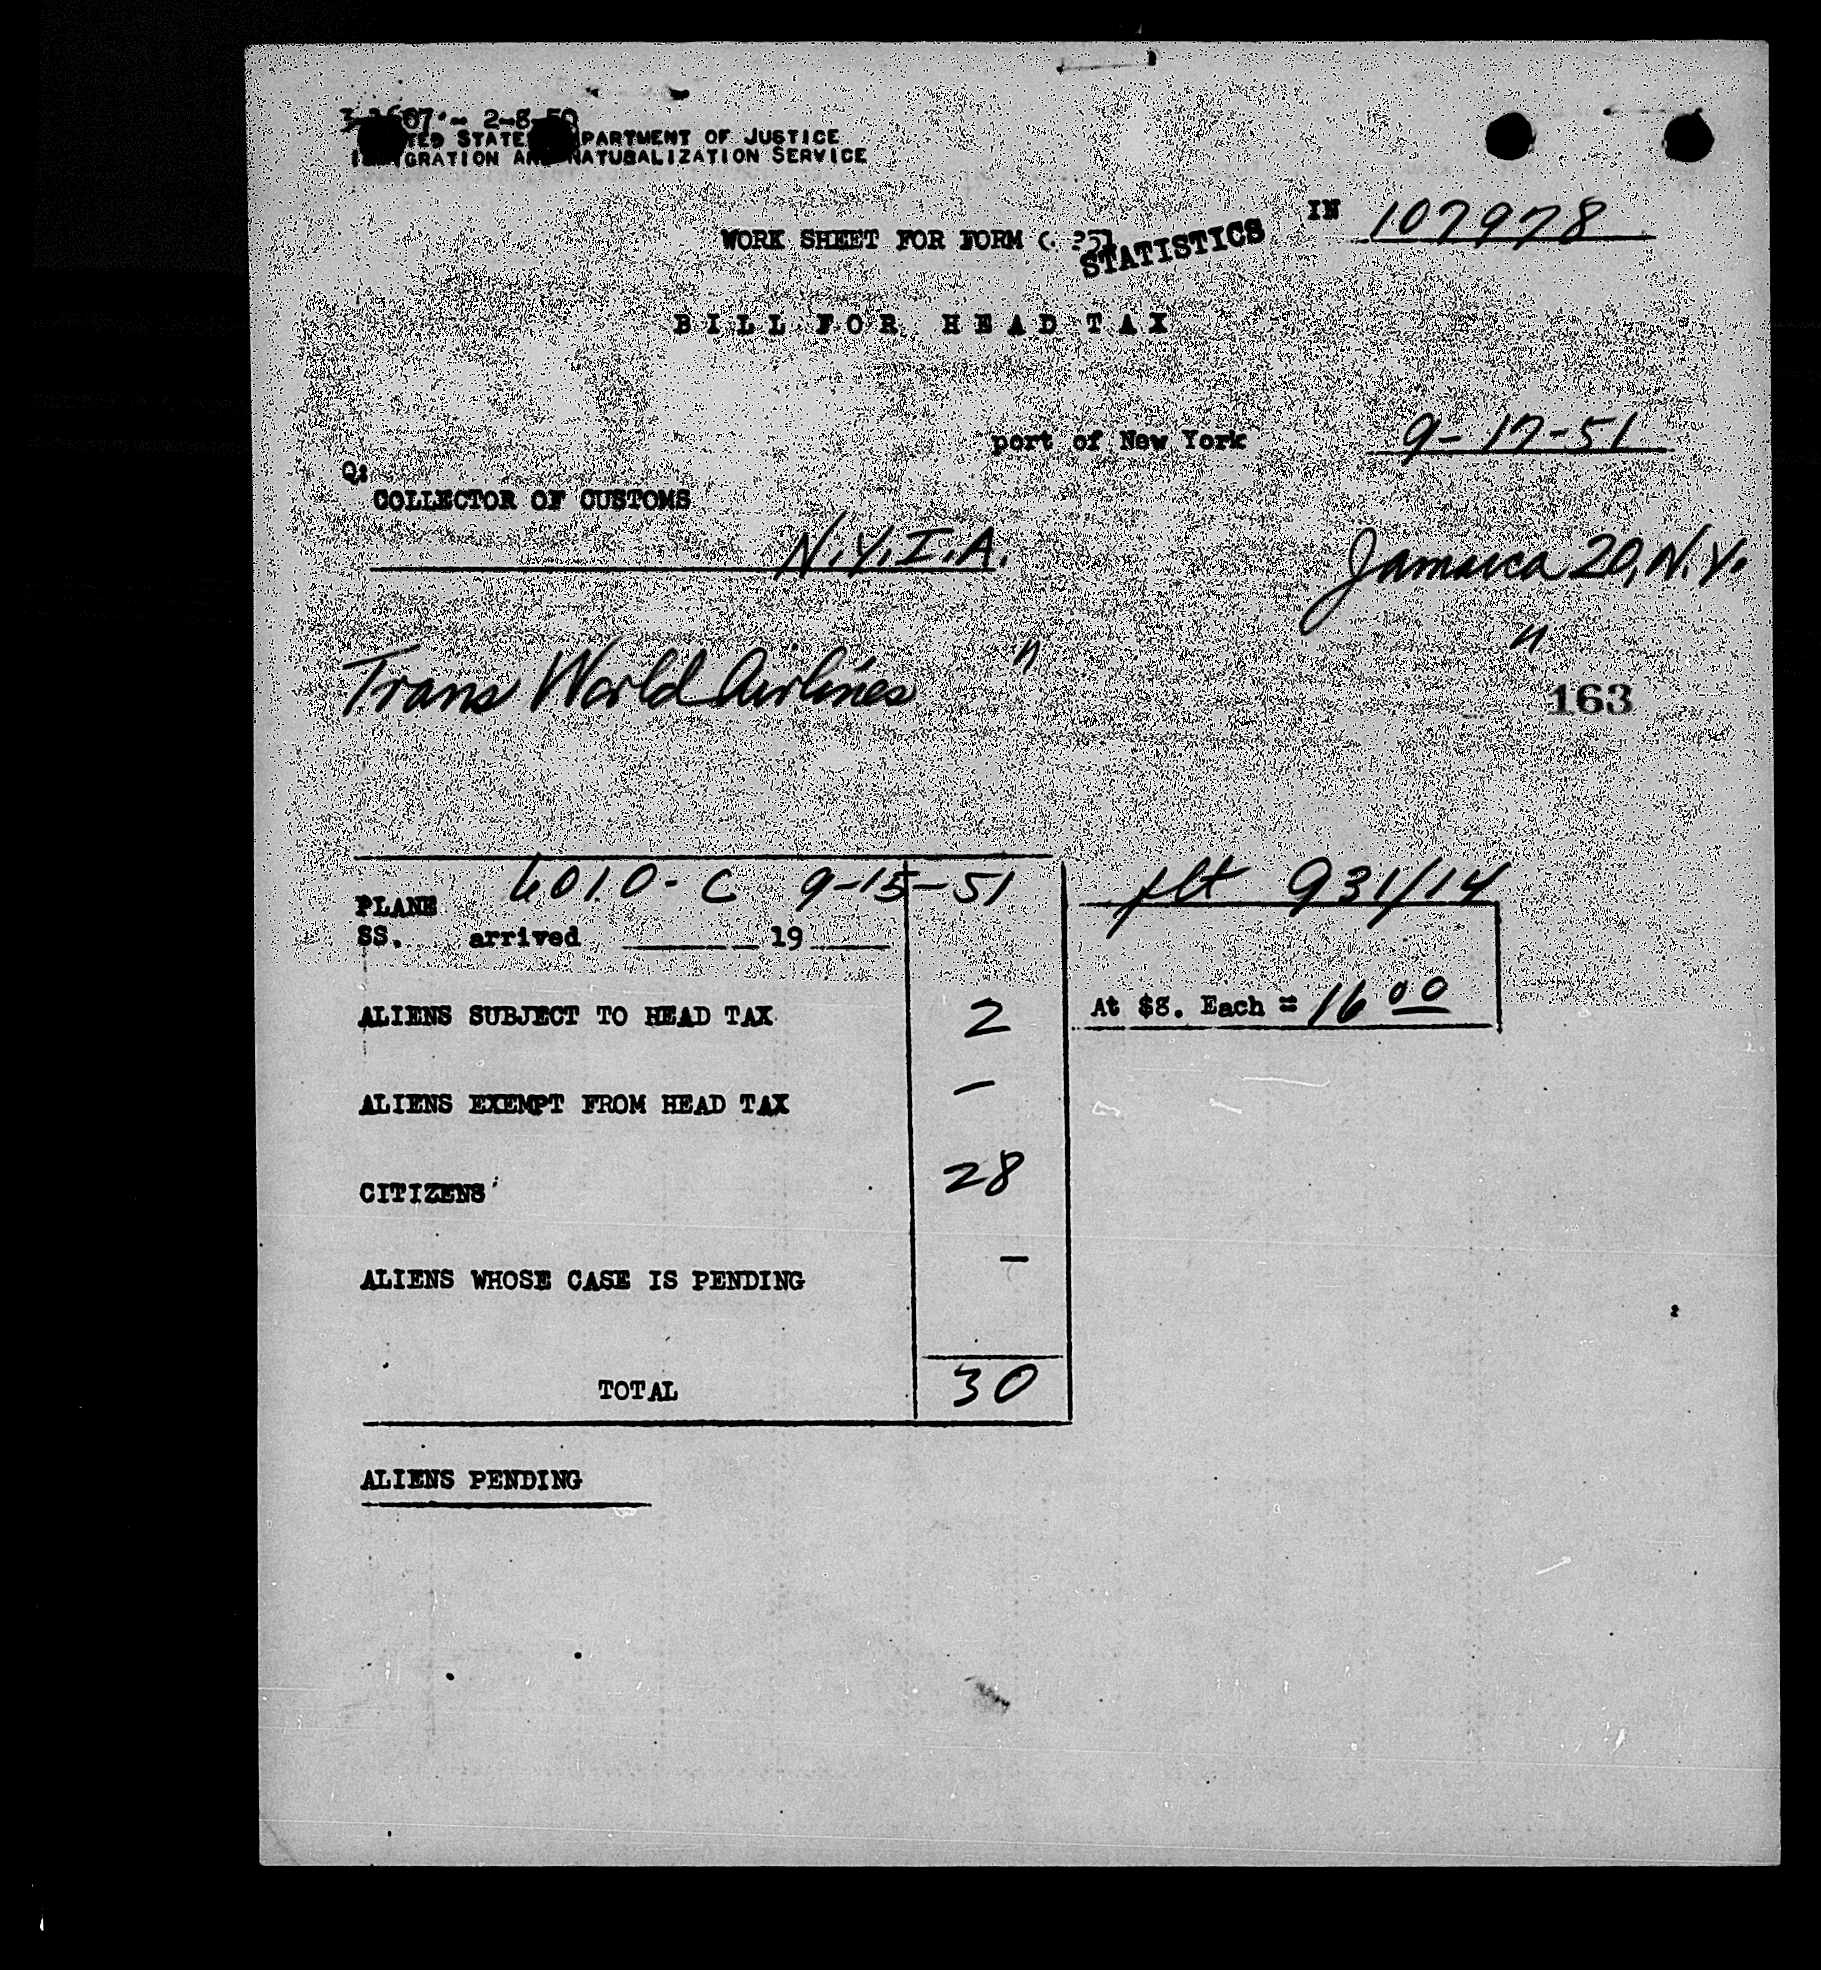 2-8-50
STATES DEPARTMENT OF JUSTICE
IMMIGRATION AND NATURALIZATION SERVICE
IN 107978
WORK SHEET FOR FORM
STATISTICS
BILL FOR HEAD TAX
port of New York 9-17-51
COLLECTOR OF CUSTOMS
N.Y.I.A. Jamaica 20, N.Y.
Trans World Airlines " "
163
6010-C 9-15-51 flt 931/14
PLANE
SS. arrived ________ 19 ____
ALIENS SUBJECT TO HEAD TAX 2 At $8. Each = 16 00
ALIENS EXEMPT FROM HEAD TAX -
CITIZENS 28
ALIENS WHOSE CASE IS PENDING -
TOTAL 30
ALIENS PENDING